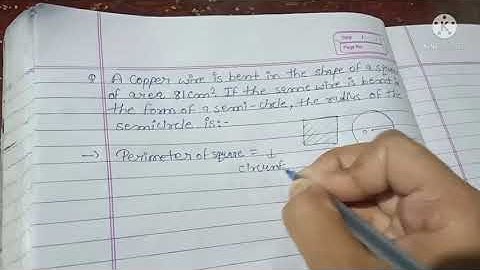 Q A copper wire is bent in the shape of a square
of area 81cm². If the same wire is bent in
the form of a semi-circle, the radius of the
semicircle is:-
→ Perimeter of square = 1
circumf